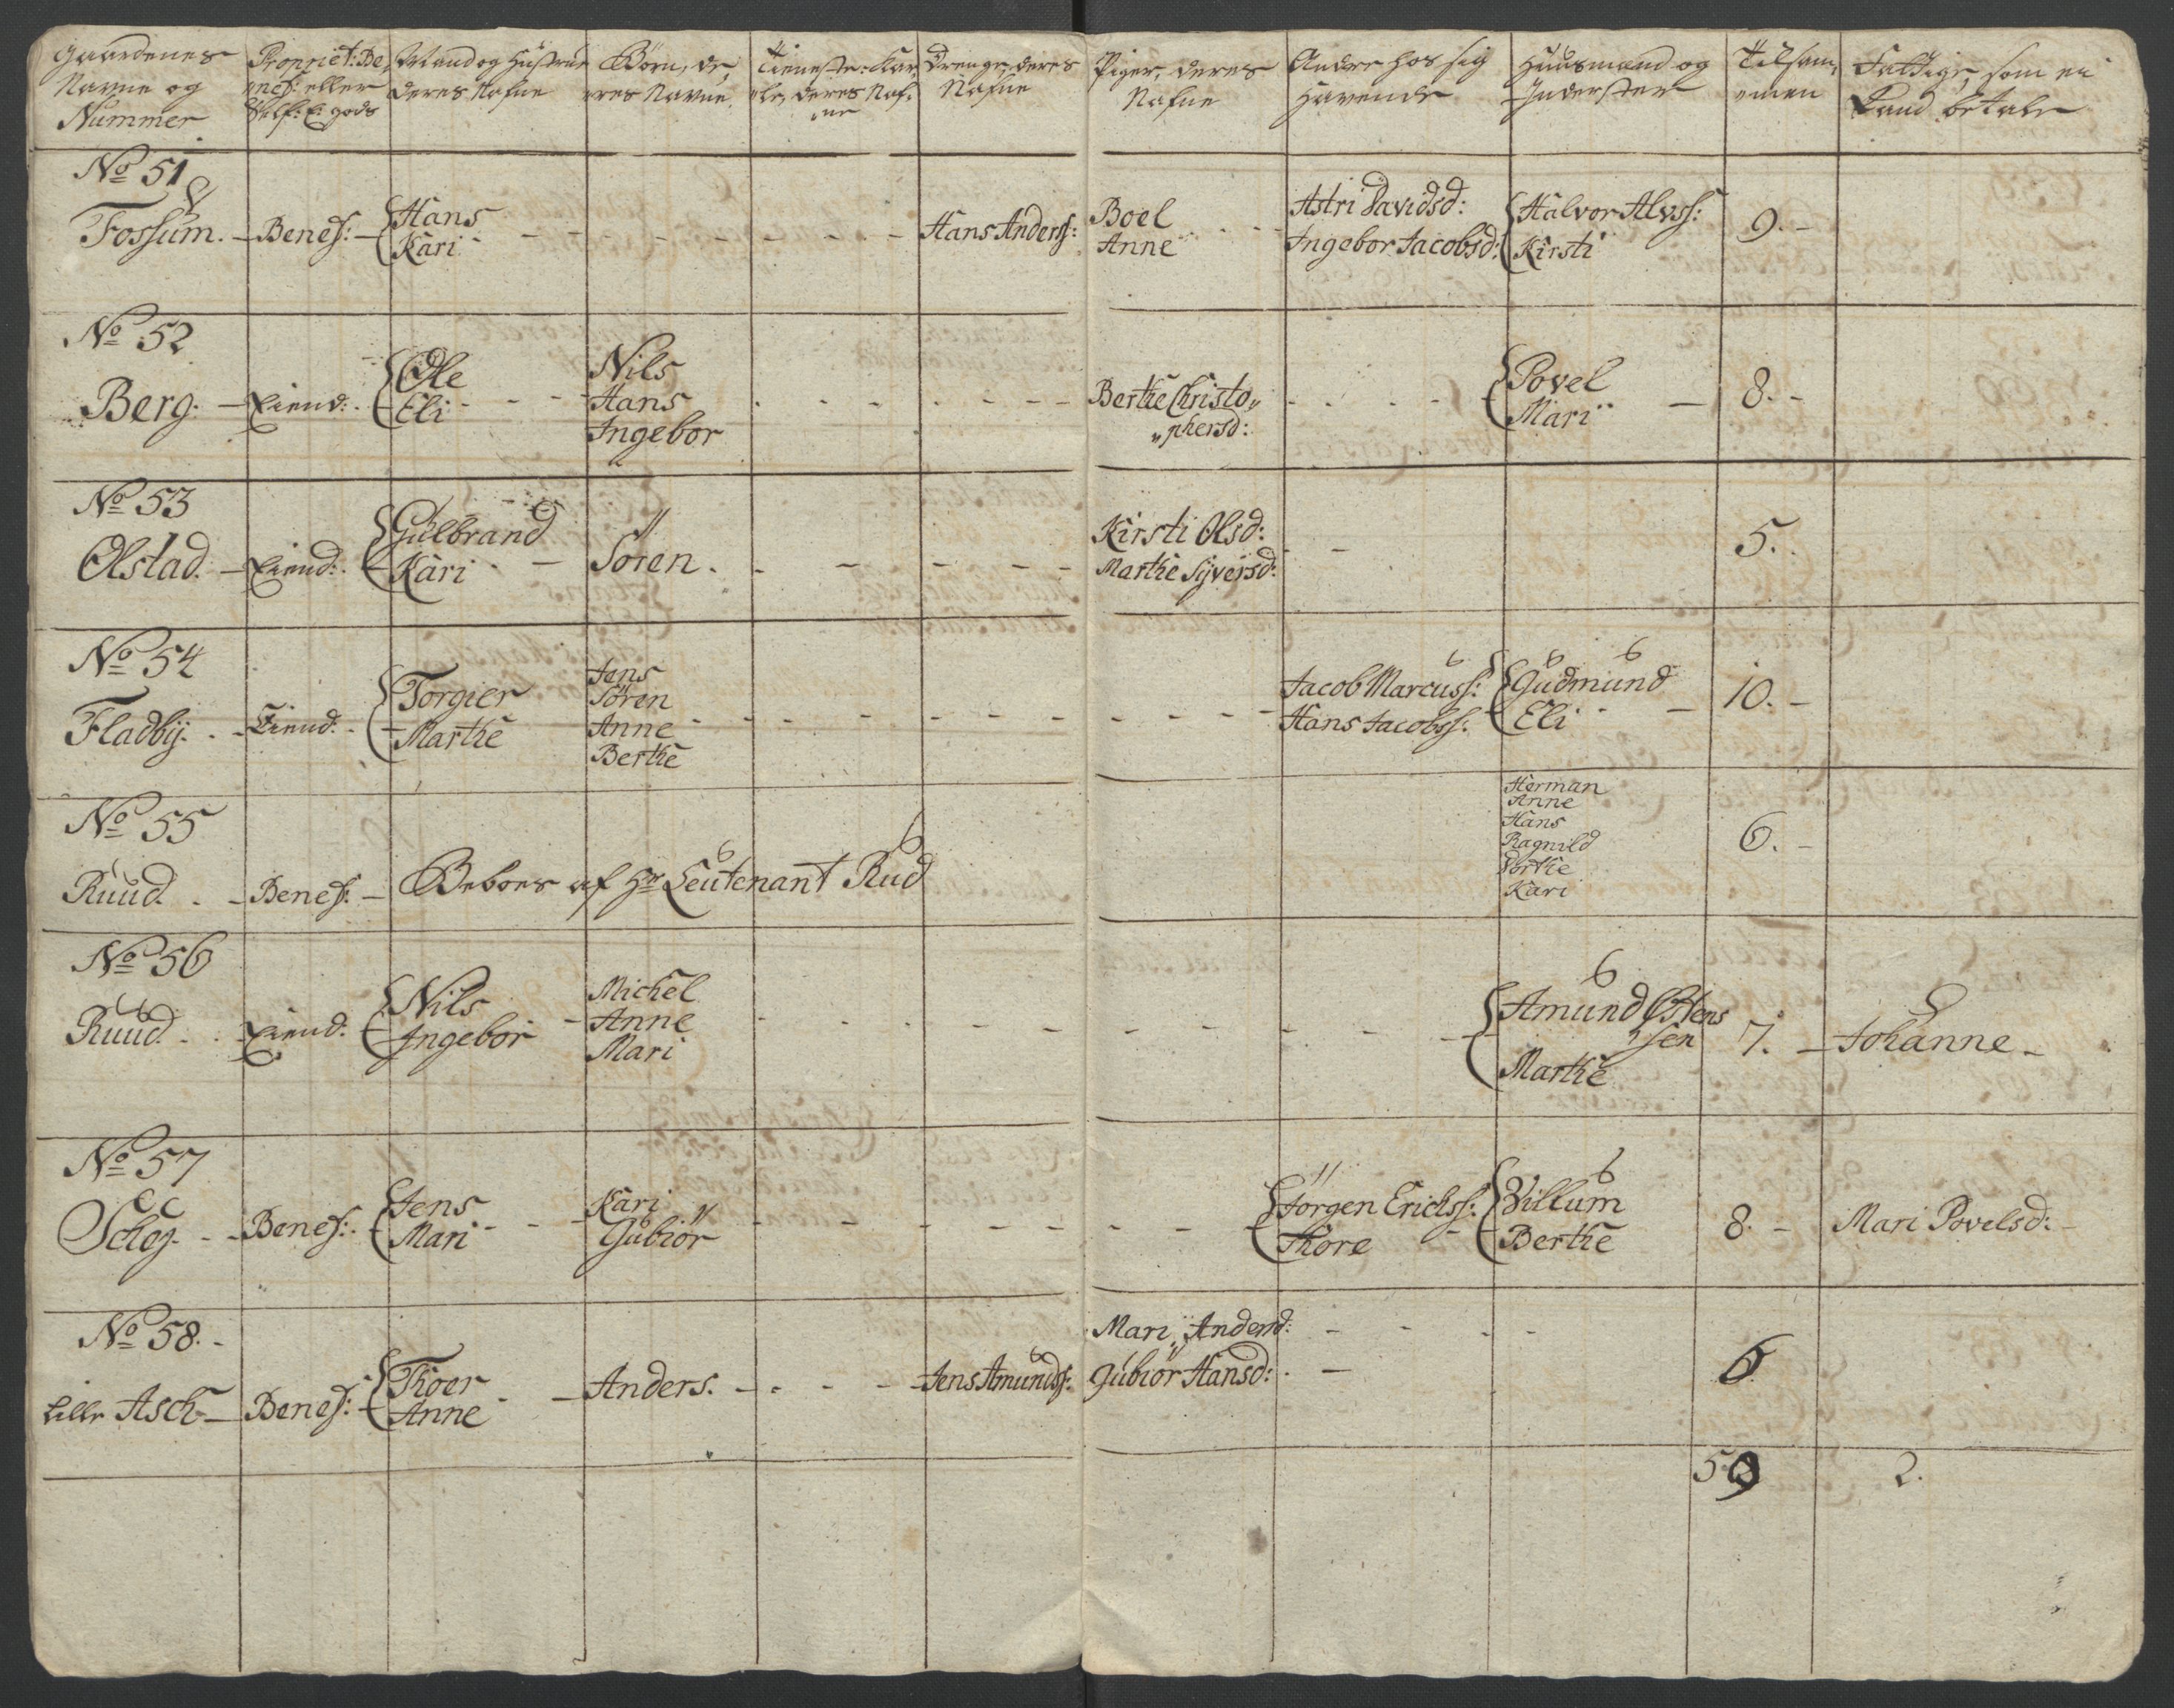 Gaardenes
Navne og
Nummer
Propriet: Be„
„nef: eller
Self: E: gods
Mand og Hustrue
deres Nafne
Børn, de„
„res Navne.
Tieneste-Kar„
„le, deres Naf„
„ne
Drenge, deres
Nafne
Piger, deres
Nafne
Andre hos sig
havende
Huusmænd og
Inderster
Tilsam„
„men
Fattige, som ei
kand betale
No 51
Fossum. - Benef: - Hans
Kari - Hans Anderss: Boel
Anne - Astri Davidsd:
Ingebor Jacobsd: Halvor Alvss:
Kirsti 9. -
No 52
Berg. - Eiend: Ole
Eli - Nils
Hans
Ingebor - Berthe Christo„
„phersd: - Povel
Mari - 8. -
No 53
Olstad. - Eiend: Gulbrand
Kari - Sören. - Kirsti Olsd:
Marthe Syversd: - 5.
No 54
Fladby. - Eiend: Torgier
Marthe Jens
Sören
Anne
Berthe - Jacob Marcuss:
Hans Jacobss: Gudmund
Eli - 10. -
No 55
Ruud. - Benef: - Beboes af Hr Leutenant Rud
Herman
Anne
Hans
Ragnild
Dorthe
Kari
6. -
No 56
Ruud. - Eiend: Nils
Ingebor - Michel
Anne
Mari - Amund Østens
„sen
Marthe 7. - Johanne -
No 57
Schog. - Benef: Jens
Mari - Kari
Gubiör - Jörgen Erichss:
Thore - Villum
Berthe 8. - Mari Povelsd: -
No 58. -
Lille Asch - Benef: Thoer
Anne - Anders. - Jens Amundss: Mari Andersd:
Gubiör Hansd: - 6
59 2.